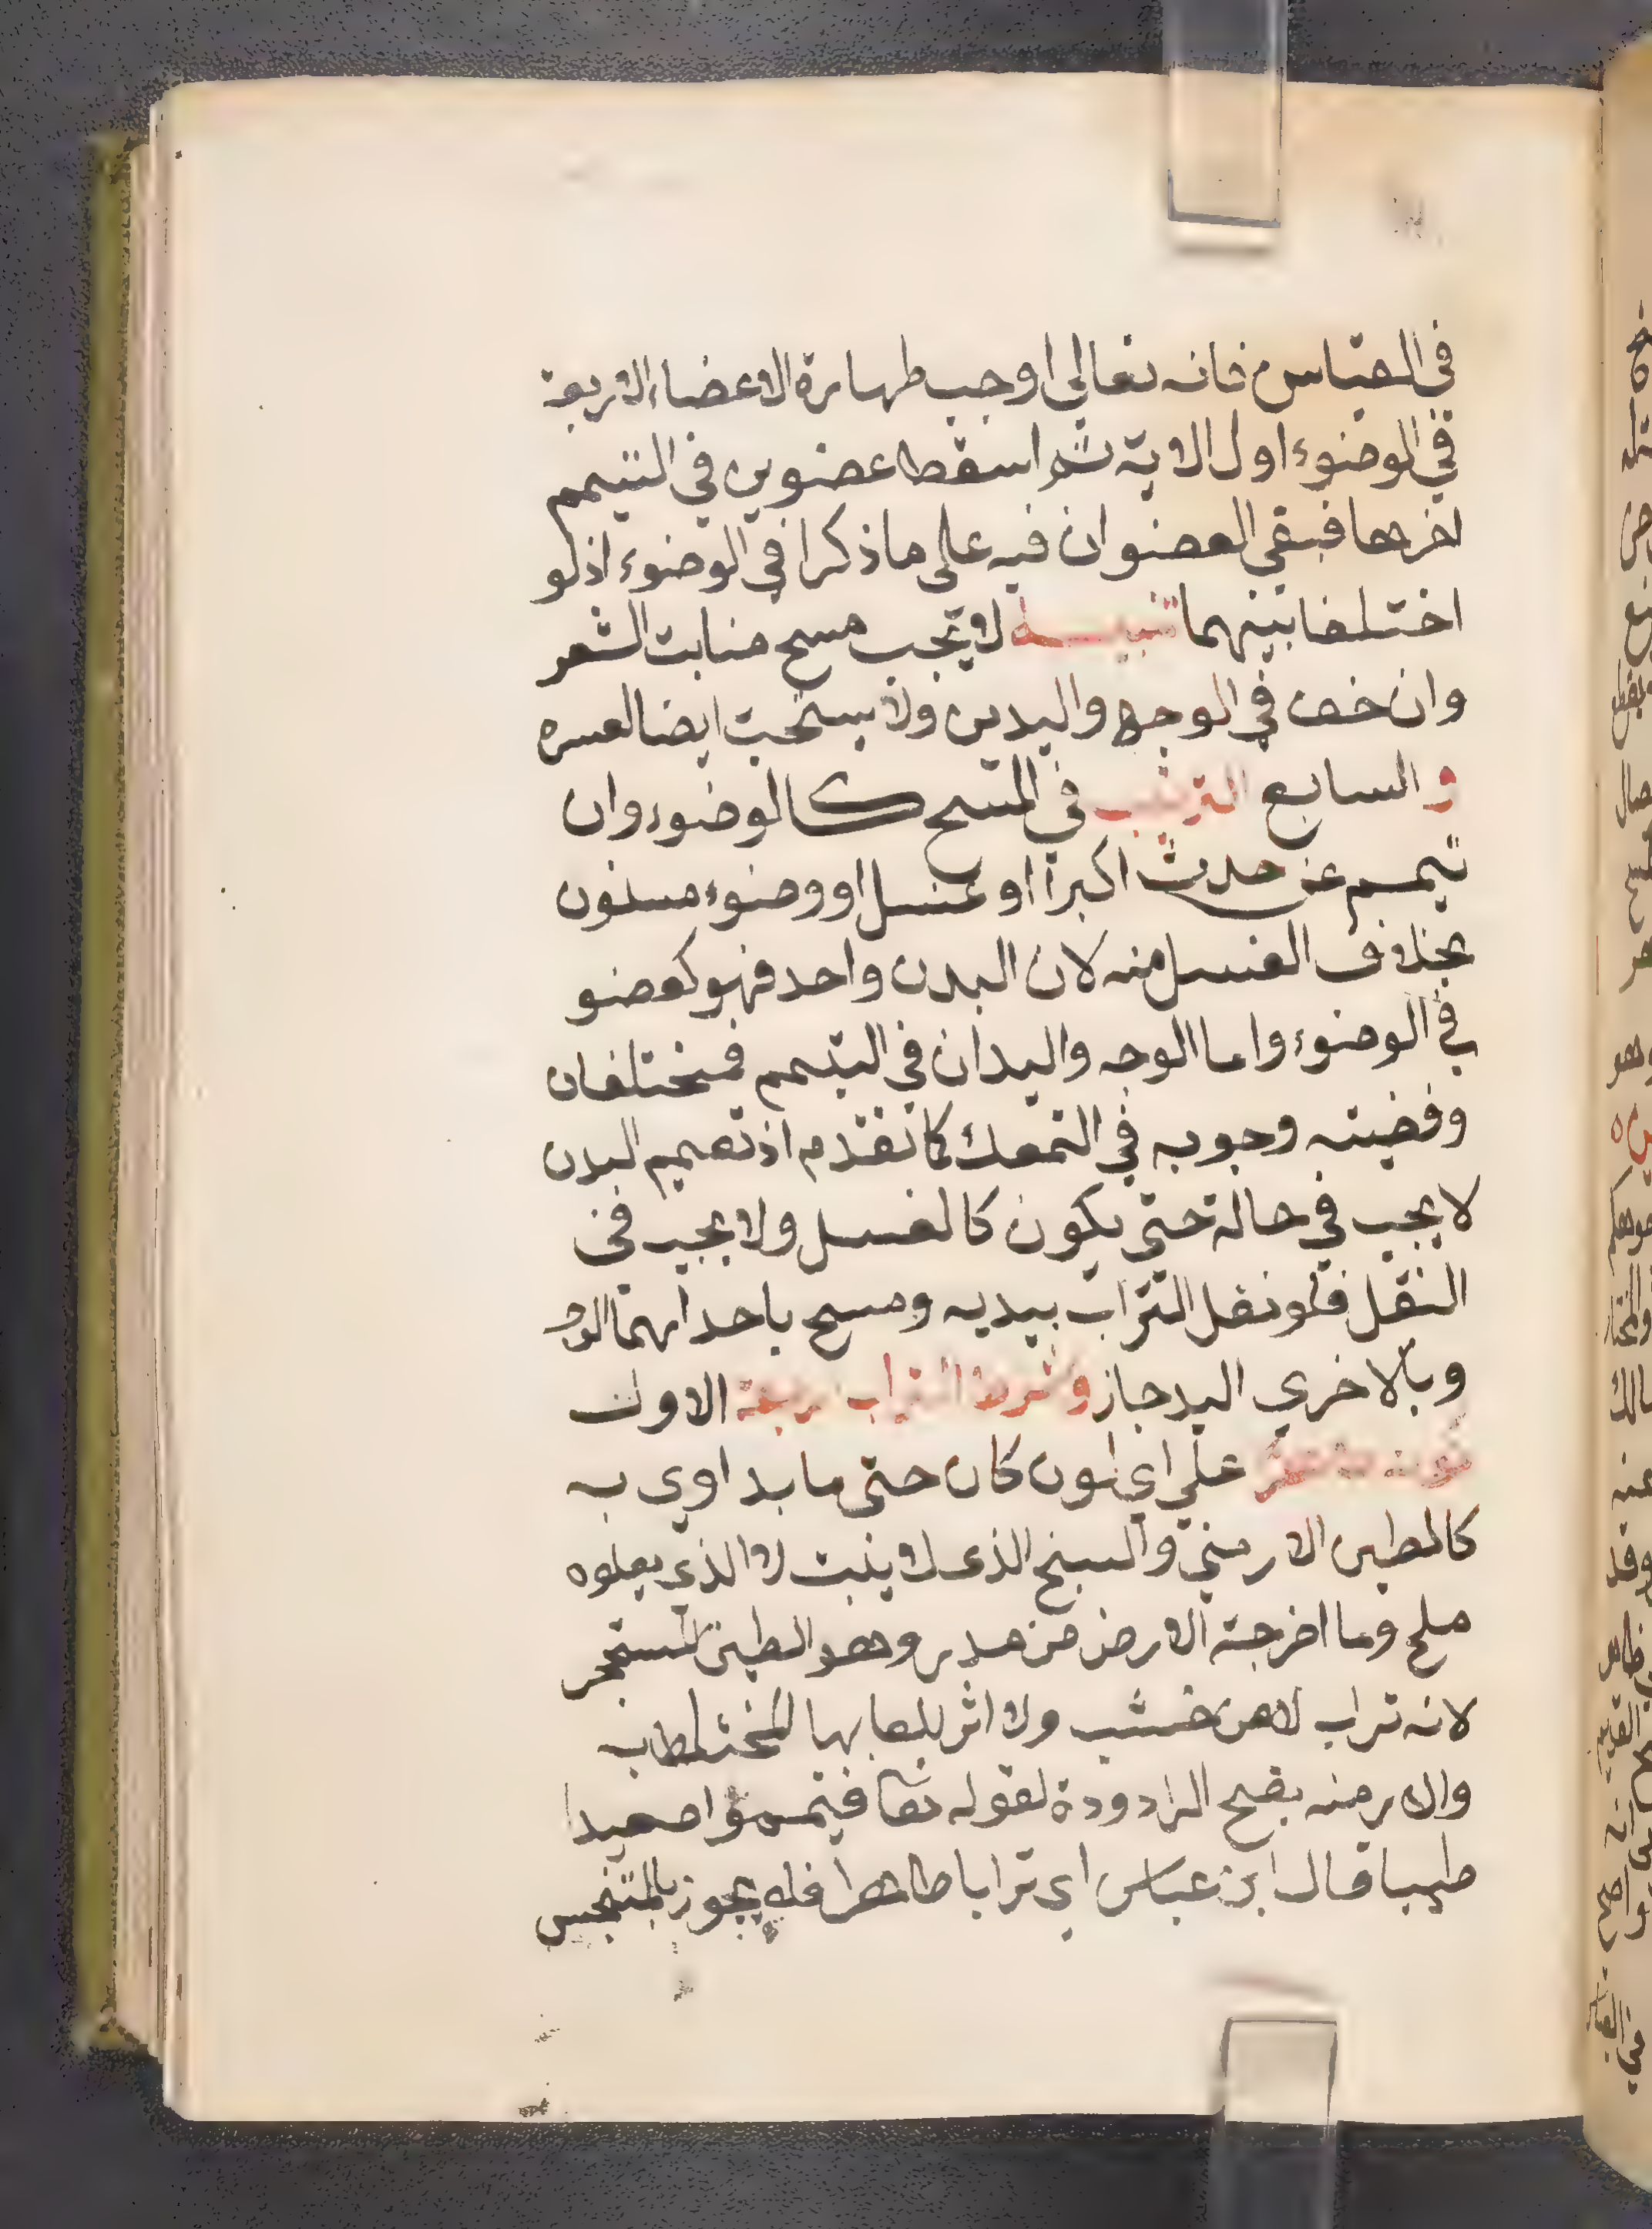 في القياس فانه تعالي اوجب طهارة الاعضاء الاربعة
في الوضوء اول الاية ثم اسقط عضوين في التيمم
اخرها فبقي العضوان فيه على ما ذكرا في الوضوء اذ لو
اختلفا بينهما تنبيه لا يجب مسح منابت الشعر
وان خف في الوجه واليدين ولا يستحب ايضا لعسره
والسابع الترتيب في المسح كالوضوء وان
تيمم عن حدث اكبر او غسل او وضوء مسنون
بخلاف الغسل منه لان البدن واحد فهو كعضو
في الوضوء واما الوجه واليدان في التيمم فمختلفان
وقضيته وجوبه في التمعك كما تقدم اذ تعميم البدن
لا يجب في حالة حتى يكون كالغسل ولا يجب في
النقل فلو نقل التراب بيديه ومسح باحداهما
وبالاخري اليد جاز وشرط التراب اربعة الاول
علي اي لون كان حتى ما يداوي به
كالطين الارمني والسبخ الذي لا ينبت لا الذي يعلوه
ملح وما اخرجته الارض من مدر وهو الطين المستحجر
لانه تراب لا من خشب ولا اثر للعابها المختلط به
والارضه بفتح الرا دودة لقوله تعا فتيمموا صعيدا
طيبا قال ابن عباس اي ترابا طاهرا فلا يجوز بالمتنجس